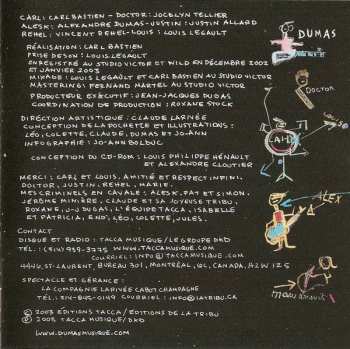 CARL: CARL BASTIEN - DOCTOR: JOCELYN TELLIER
ALESK: ALEXANDRE DUMAS - JUSTIN: JUSTIN ALLARD
REHEL: VINCENT REHEL - LOUIS: LOUIS LEGAULT
RÉALISATION: CARL BASTIEN
PRISE DE SON: LOUIS LEGAULT
ENREGISTRÉ AU STUDIO VICTOR ET WILD EN DÉCEMBRE 2002
ET JANVIER 2003
MIXAGE: LOUIS LEGAULT ET CARL BASTIEN AU STUDIO VICTOR
MASTERING: FERNAND MARTEL AU STUDIO VICTOR
PRODUCTEUR EXÉCUTIF: JEAN-JACQUES DUGAS
COORDINATION DE PRODUCTION: ROXANE STOCK
DIRECTION ARTISTIQUE: CLAUDE LARIVÉE
CONCEPTION DE LA POCHETTE ET ILLUSTRATIONS:
LÉO, COLETTE, CLAUDE, DUMAS ET JO-ANN
INFOGRAPHIE: JO-ANN BOLDUC
CONCEPTION DU CD-ROM: LOUIS PHILIPPE HÉNAULT
ET ALEXANDRE CLOUTIER
MERCI: CARL ET LOUIS, AMITIÉ ET RESPECT INFINI,
DOCTOR, JUSTIN, REHEL, MARIE,
MES CRIMINELS EN CAVALE: ALESK, PAT ET SIMON,
JÉRÔME MINIÈRE, CLAUDE ET SA JOYEUSE TRIBU,
ROXANE, J-J DUGAS, L'ÉQUIPE TACCA, ISABELLE
ET PATRICIA, ENO, LÉO, COLETTE, JULES.
CONTACT
DISQUE ET RADIO: TACCA MUSIQUE/LE GROUPE DKD
COURRIEL: INFO@TACCAMUSIQUE.COM
4446, ST-LAURENT, BUREAU 301, MONTRÉAL, QC, CANADA, H2W 1Z5
SPECTACLE ET GÉRANCE:
LA COMPAGNIE LARIVÉE CABOT CHAMPAGNE
TÉL: 514-845-0149 COURRIEL: INFO@LATRIBU.CA
© 2003 ÉDITIONS TACCA/ÉDITIONS DE LA TRIBU
℗ 2003 TACCA MUSIQUE/DKD
WWW.DUMASMUSIQUE.COM
DUMAS
DOCTOR
CARL
ALEX